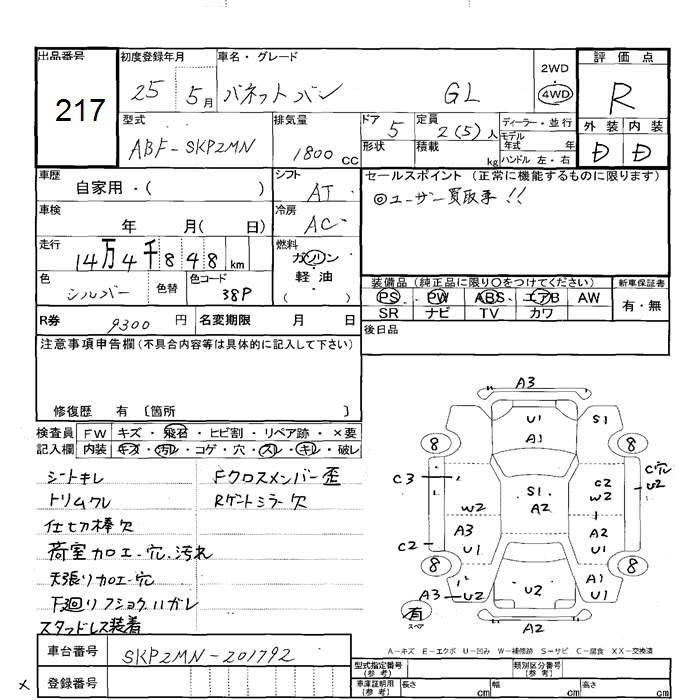 出品番号
217
初度登録年月
25 5月
車名・グレード
バネットバン GL
2WD
4WD
評価点
R
外装 内装
D D
型式
ABF-SKP2MN
排気量
1800 CC
ドア 5
形状
定員 2(5)人
積載 kg
ディーラー・並行
モデル年式 年
ハンドル 左・右
車歴
自家用・( )
シフト
AT
車検
年 月( 日)
冷房
AC
走行
14万4千848 km
燃料
ガソリン
軽油
( )
色
シルバー
色替
色コード
38P
セールスポイント (正常に機能するものに限ります)
◎ユーザー買取車!!
装備品 (純正品に限り〇をつけてください)
PS PW ABS エアB AW
SR ナビ TV カワ
新車保証書
有・無
R券 9300 円
名変期限 月 日
後日品
注意事項申告欄(不具合内容等は具体的に記入して下さい)
修復歴 有 〔箇所 〕
検査員記入欄
FW キズ・飛石・ヒビ割・リペア跡・×要
内装 キズ・汚れ・コゲ・穴・スレ・キレ・破レ
シートキレ
トリムワレ
仕切棒欠
荷室加工穴.汚れ
天張り加工穴
下廻りフショクハガレ
スタッドレス装着
Fクロスメンバー歪
Rゲートミラー欠
A3
U1
A1
S1
8 8
C3
W2
S1
A2
C2
W2
C穴
U2
C2
A3
U1
A2
U1
8 8
A3
U2
U2
A1
U1
有
スペア
A2
A-キズ E-エクボ U-凹み W-補修跡 S-サビ C-腐食 XX-交換済
車台番号
SKP2MN-201792
×
登録番号
型式指定番号(参考)
類別区分番号(参考)
車庫証明用(参考)
長さ cm
幅 cm
高さ cm